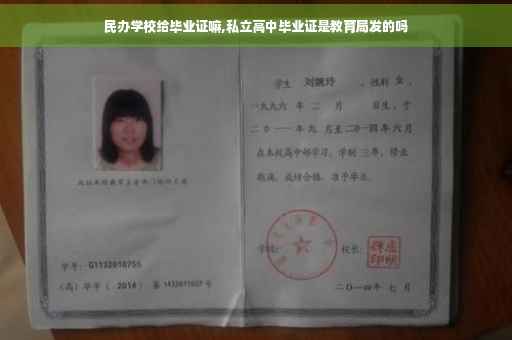 民办学校给毕业证嘛,私立高中毕业证是教育局发的吗
学生 刘婉玲 ，性别 女 ，
一九九六 年 二 月 日生，于
二〇一一年九 月至二〇一四年六月
在本校高中部学习，学制 三年，修业
期满，成绩合格，准予毕业。
学校： 校长：
学号： G1132010755
(高) 毕字 ( 2014 ) 第 1432011027 号
二〇一四年 七 月